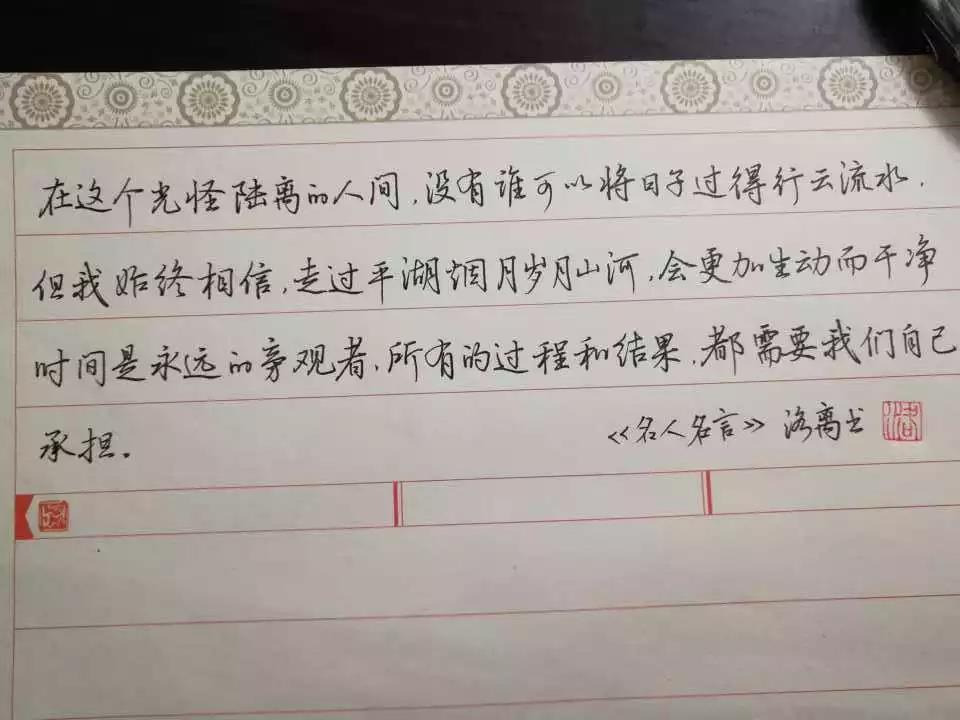 在这个光怪陆离的人间,没有谁可以将日子过得行云流水.
但我始终相信,走过平湖烟月岁月山河,会更加生动而干净
时间是永远的旁观者,所有的过程和结果,都需要我们自己
承担。
《名人名言》 洛离书